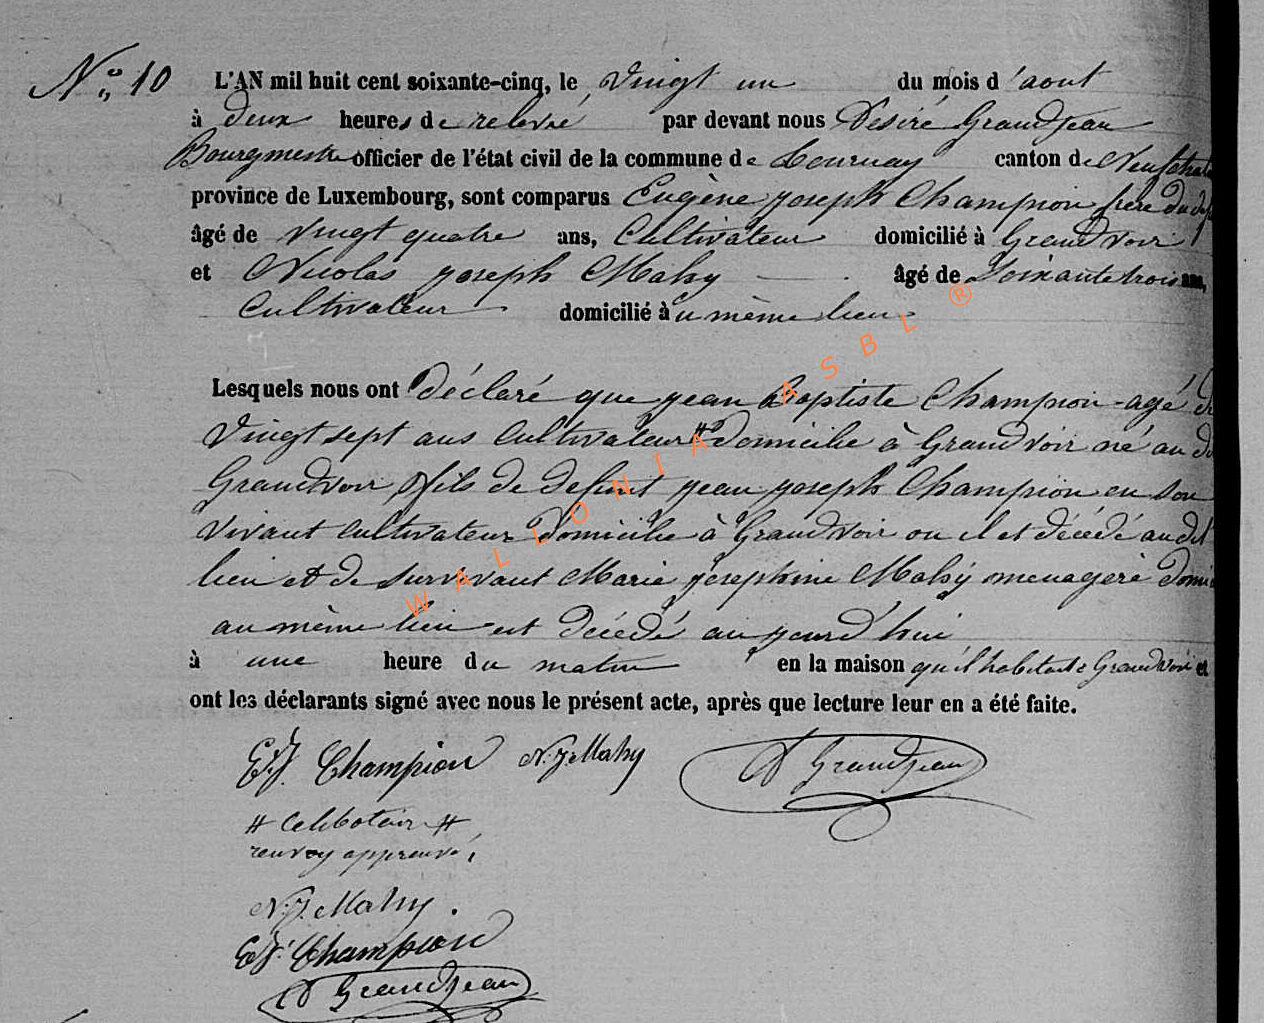 N° 10
L'AN mil huit cent soixante-cinq, le vingt un du mois d'aout
à deux heures de relevé par devant nous Desiré Grandjean
Bourgmestre officier de l'état civil de la commune de Tournay canton de Neufchate
province de Luxembourg, sont comparus Eugène joseph Champion frère du
âgé de vingt quatre ans, Cultivateur domicilié à Grandvoir
et Nicolas joseph Mahy âgé de Soixante trois ans,
Cultivateur domicilié au même lieu
Lesquels nous ont déclaré que jean Baptiste Champion agé de
Vingt sept ans Cultivateur # domicilié à Grandvoir né au dit
Grandvoir, fils de defunt jean joseph Champion en son
vivant cultivateur domicilié à Grandvoir ou il et décédé au dit
lieu et de survivant Marie josephine Mahy menagere domi
au même lieu est décédé aujourd'hui
à une heure du matin en la maison qu'il habitait à Grandvoir et
ont les déclarants signé avec nous le présent acte, après que lecture leur en a été faite.
E.J. Champion N.J. Mahy D Grandjean
# Celibatair #
renvoy appreuvé,
N.J. Mahy.
E.J. Champion
D Grandjean
WALLONIA ASBL ®